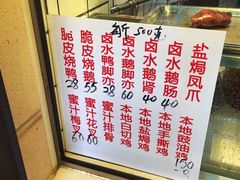 每斤500克
盐焗凤爪
卤水鹅肠 40
卤水鹅肾 40
卤水鹅脚亦 60
卤水鸭脚亦 28
脆皮烧鹅 55
脆皮烧鸭 28
本地豉油鸡
本地手撕鸡
本地盐焗鸡
本地白切鸡
蜜汁排骨
蜜汁花叉 60
蜜汁梅叉